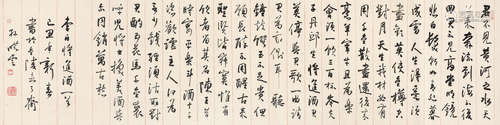 君不見黃河之水天
上來奔流到海不復
回君不見高堂明鏡
悲白髮朝如青絲暮
成雪人生得意須
盡歡莫使金樽空
對月天生我材必有
用千金散盡還復來
烹羊宰牛且為樂會
須一飲三百杯岑夫
子丹邱生將進酒
杯莫停與君歌一曲請
君為我傾耳聽
鐘鼓饌玉不足貴但
願長醉不願醒古來
聖賢皆寂寞惟有
飲者留其名陳王昔
時宴平樂斗酒十千
恣歡謔主人何為
言少錢徑須沽取對
君酌五花馬千金裘
呼兒將出換美酒與
爾同銷萬古愁
李白將進酒一首
己丑年新春
孫曉雲